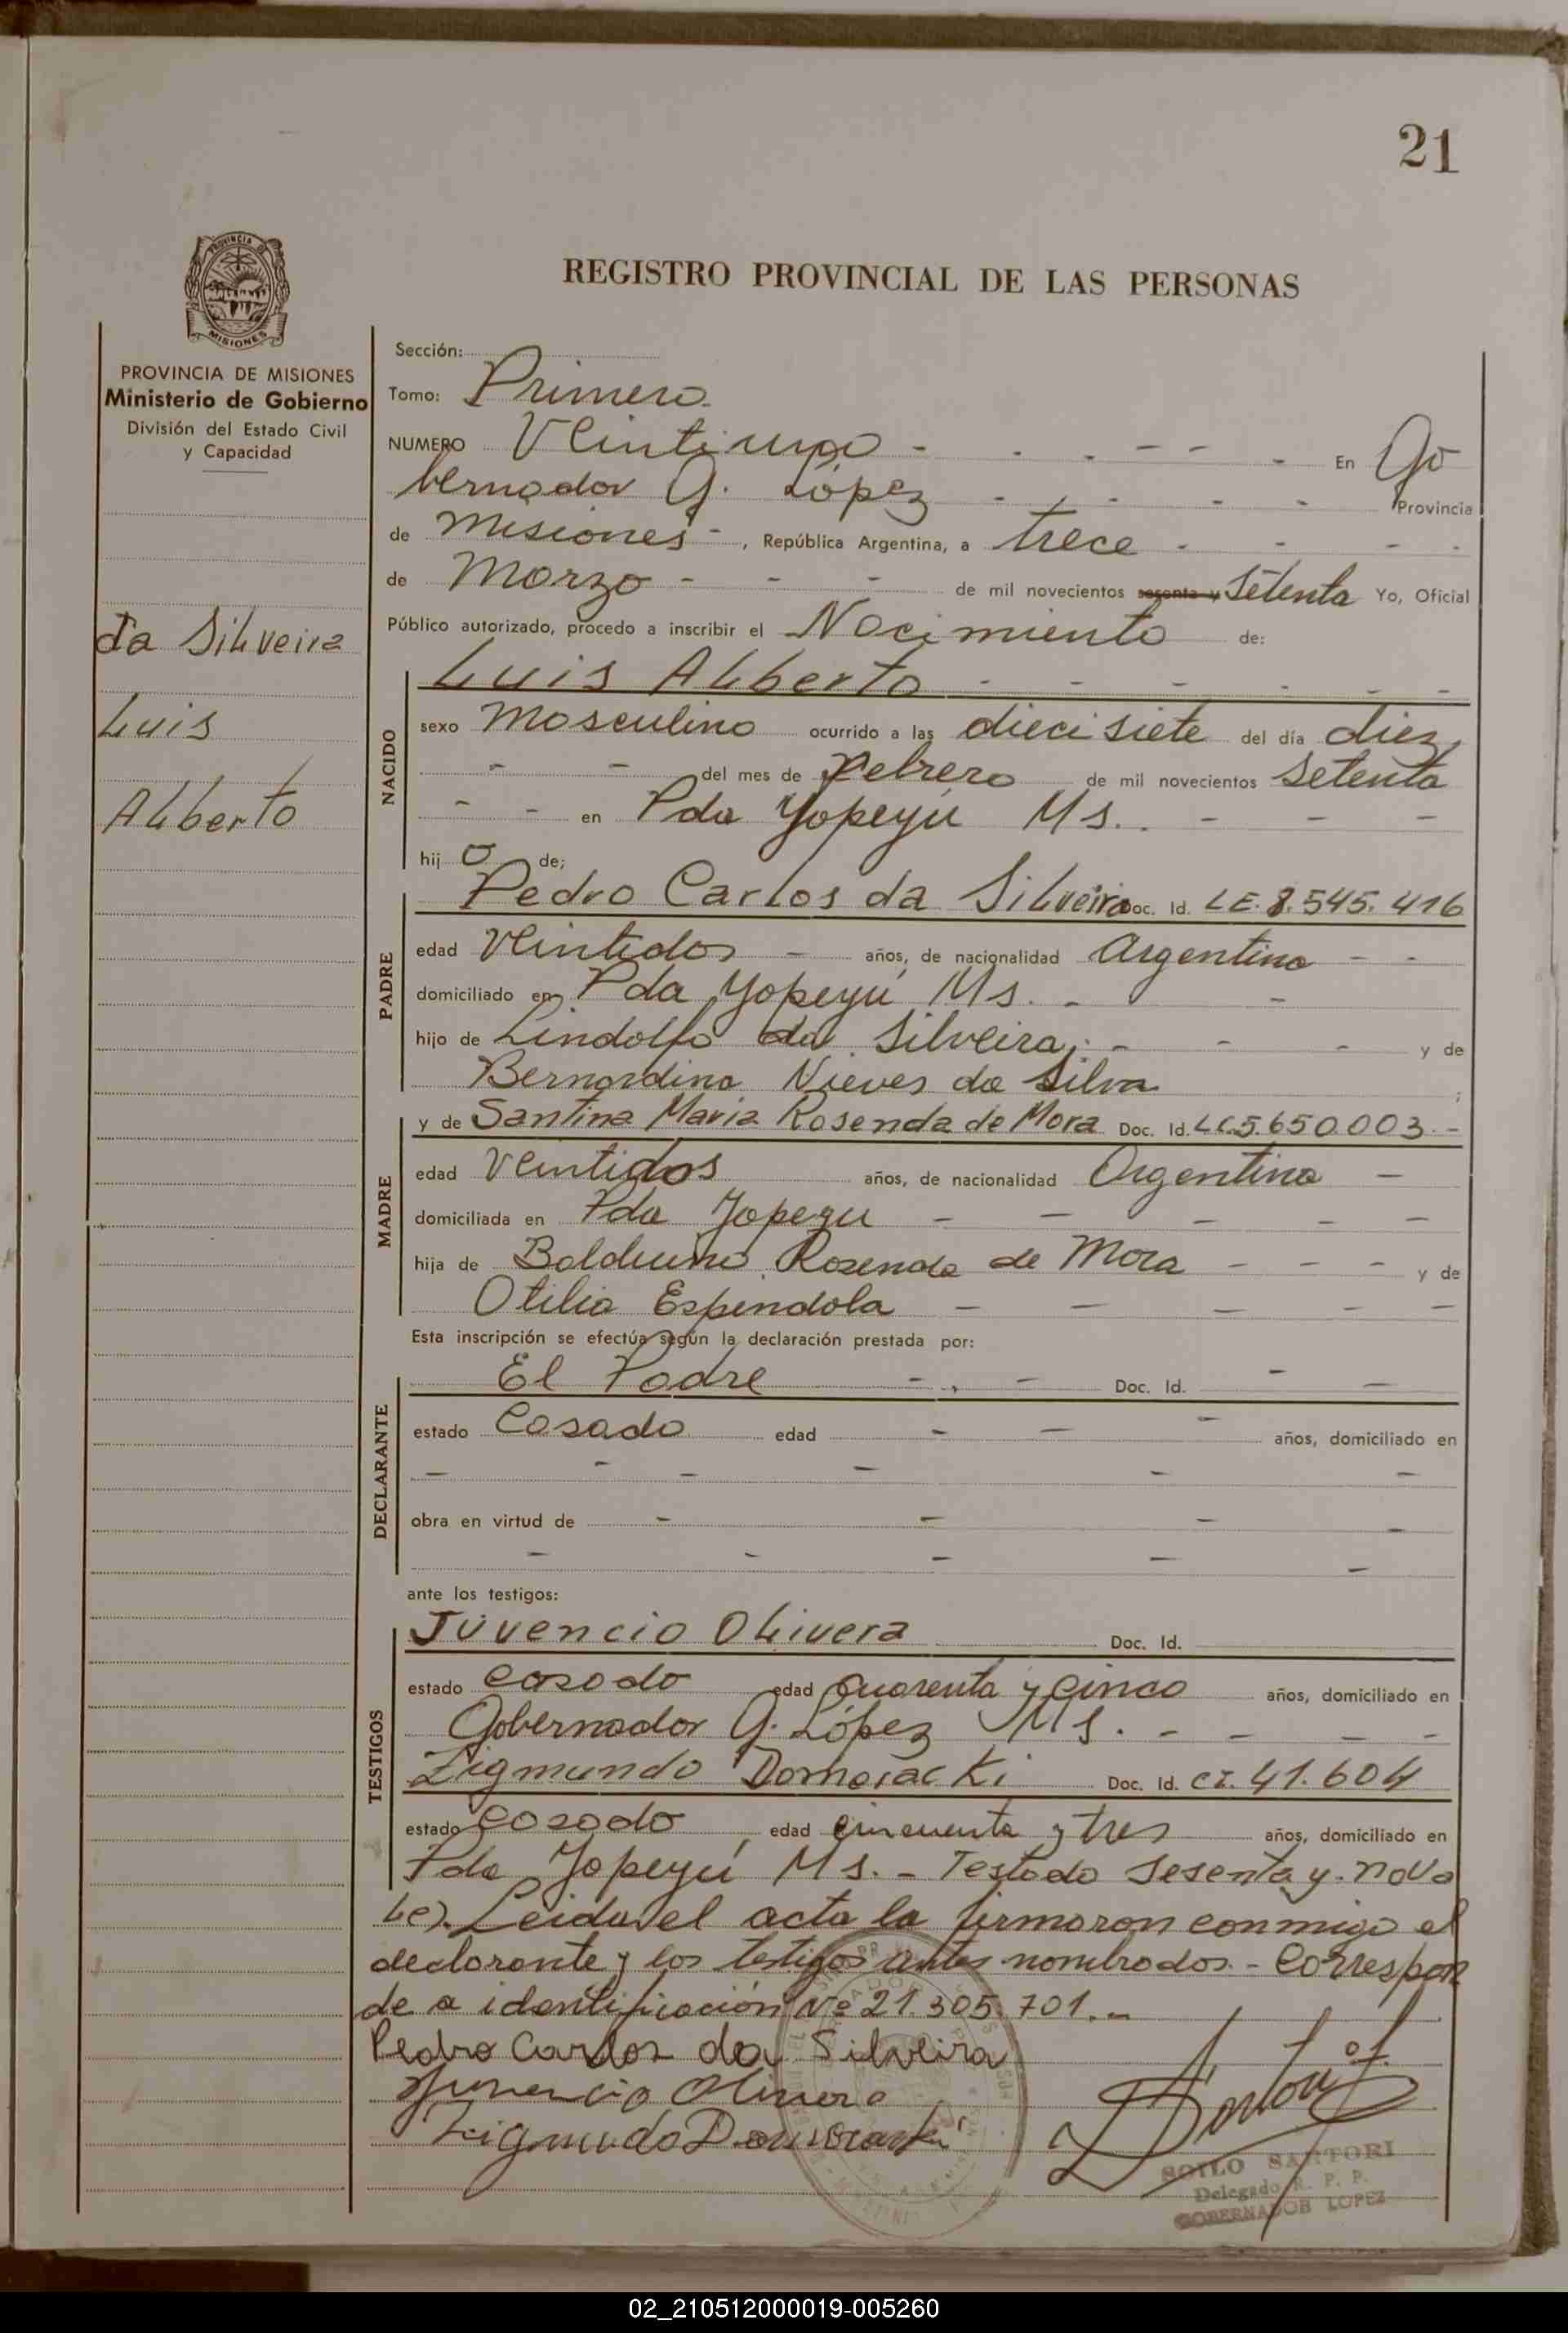 21
PROVINCIA DE
MISIONES
REGISTRO PROVINCIAL DE LAS PERSONAS
PROVINCIA DE MISIONES
Ministerio de Gobierno
División del Estado Civil
y Capacidad
da Silveira
Luis
Alberto
Sección:
Tomo: Primero.
NUMERO Veintiuno - - - - - - En Go
bernador G. López - - - - - Provincia
de Misiones -, República Argentina, a trece - - - -
de Marzo - - - de mil novecientos sesenta y Setenta Yo, Oficial
Público autorizado, procedo a inscribir el Nacimiento de:
Luis Alberto - - - - - -
NACIDO
sexo Masculino ocurrido a las diecisiete del día diez
- - del mes de Febrero de mil novecientos Setenta
- - en Pda Yapeyú Ms. - - - -
hij o de;
PADRE
Pedro Carlos da Silveira Doc. Id. LE. 8.545.416
edad Veintidos - años, de nacionalidad Argentina - -
domiciliado en Pda Yapeyú Ms. - -
hijo de Lindolfo da Silveira; - - - y de
Bernardina Nieves da Silva ;
MADRE
y de Santina Maria Rosenda de Mora Doc. Id. LC.5.650.003.-
edad Veintidos años, de nacionalidad Argentina -
domiciliada en Pda Yapeyu - - - - -
hija de Balduino Rosendo de Mora - - - y de
Otilia Espindola - - - - -
Esta inscripción se efectúa según la declaración prestada por:
DECLARANTE
El Padre - . - Doc. Id. - -
estado Casado edad - - - años, domiciliado en
- - - - - -
obra en virtud de - - - -
- - - - -
ante los testigos:
TESTIGOS
Juvencio Olivera Doc. Id.
estado casado edad cuarenta y cinco años, domiciliado en
Gobernador G. López Ms. - - - -
Zigmundo Domoracki Doc. Id. CI. 41.604
estado casado, edad cincuenta y tres años, domiciliado en
Pda Yapeyú Ms. - Testado Sesenta y. no Va
le). Leida el acta la firmaron conmigo el
declarante y los testigos antes nombrados. - Correspon
de a identificación Nº 21.305.701.-
Pedro Carlos da Silveira
Juvencio Olivera
Zigmundo Domoracki
SOILO SARTORI
Delegado R. P. P.
GOBERNADOR LOPEZ
02_210512000019-005260